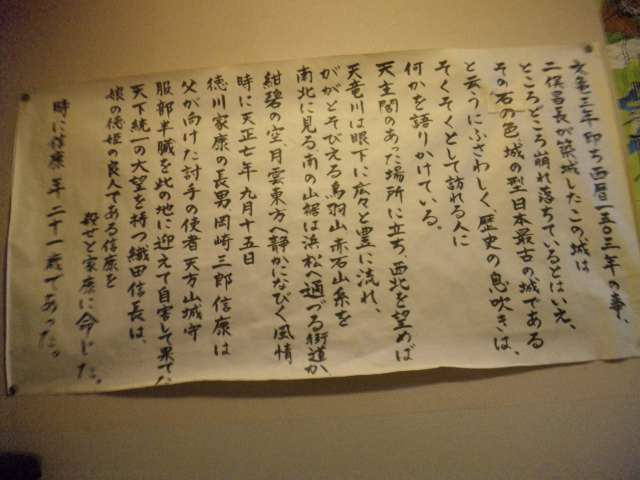 文亀三年即ち西暦一五〇三年の事、
二俣昌長が築城したこの城は
ところどころ崩れ落ちているとはいえ、
その石の色城の型日本最古の城である
と云うにふさわしく、歴史の息吹きは、
そくそくとして訪れる人に
何かを語りかけている。
天主閣のあった場所に立ち西北を望めば
天竜川は眼下に広々と豊に流れ、
ががとそびえる鳥羽山赤石山系を
南北に見る南の山裾は浜松へ通づる街道か
紺碧の空、月雲東方へ静かになびく風情
時に天正七年九月十五日
徳川家康の長男岡崎三郎信康は
父が向けた討手の使者天方山城守
服部半蔵を此の地に迎えて自害して果てた
天下統一の大望を持つ織田信長は、
娘の徳姫の良人である信康を
殺せと家康に命じた。
時に信康年二十一歳であった。